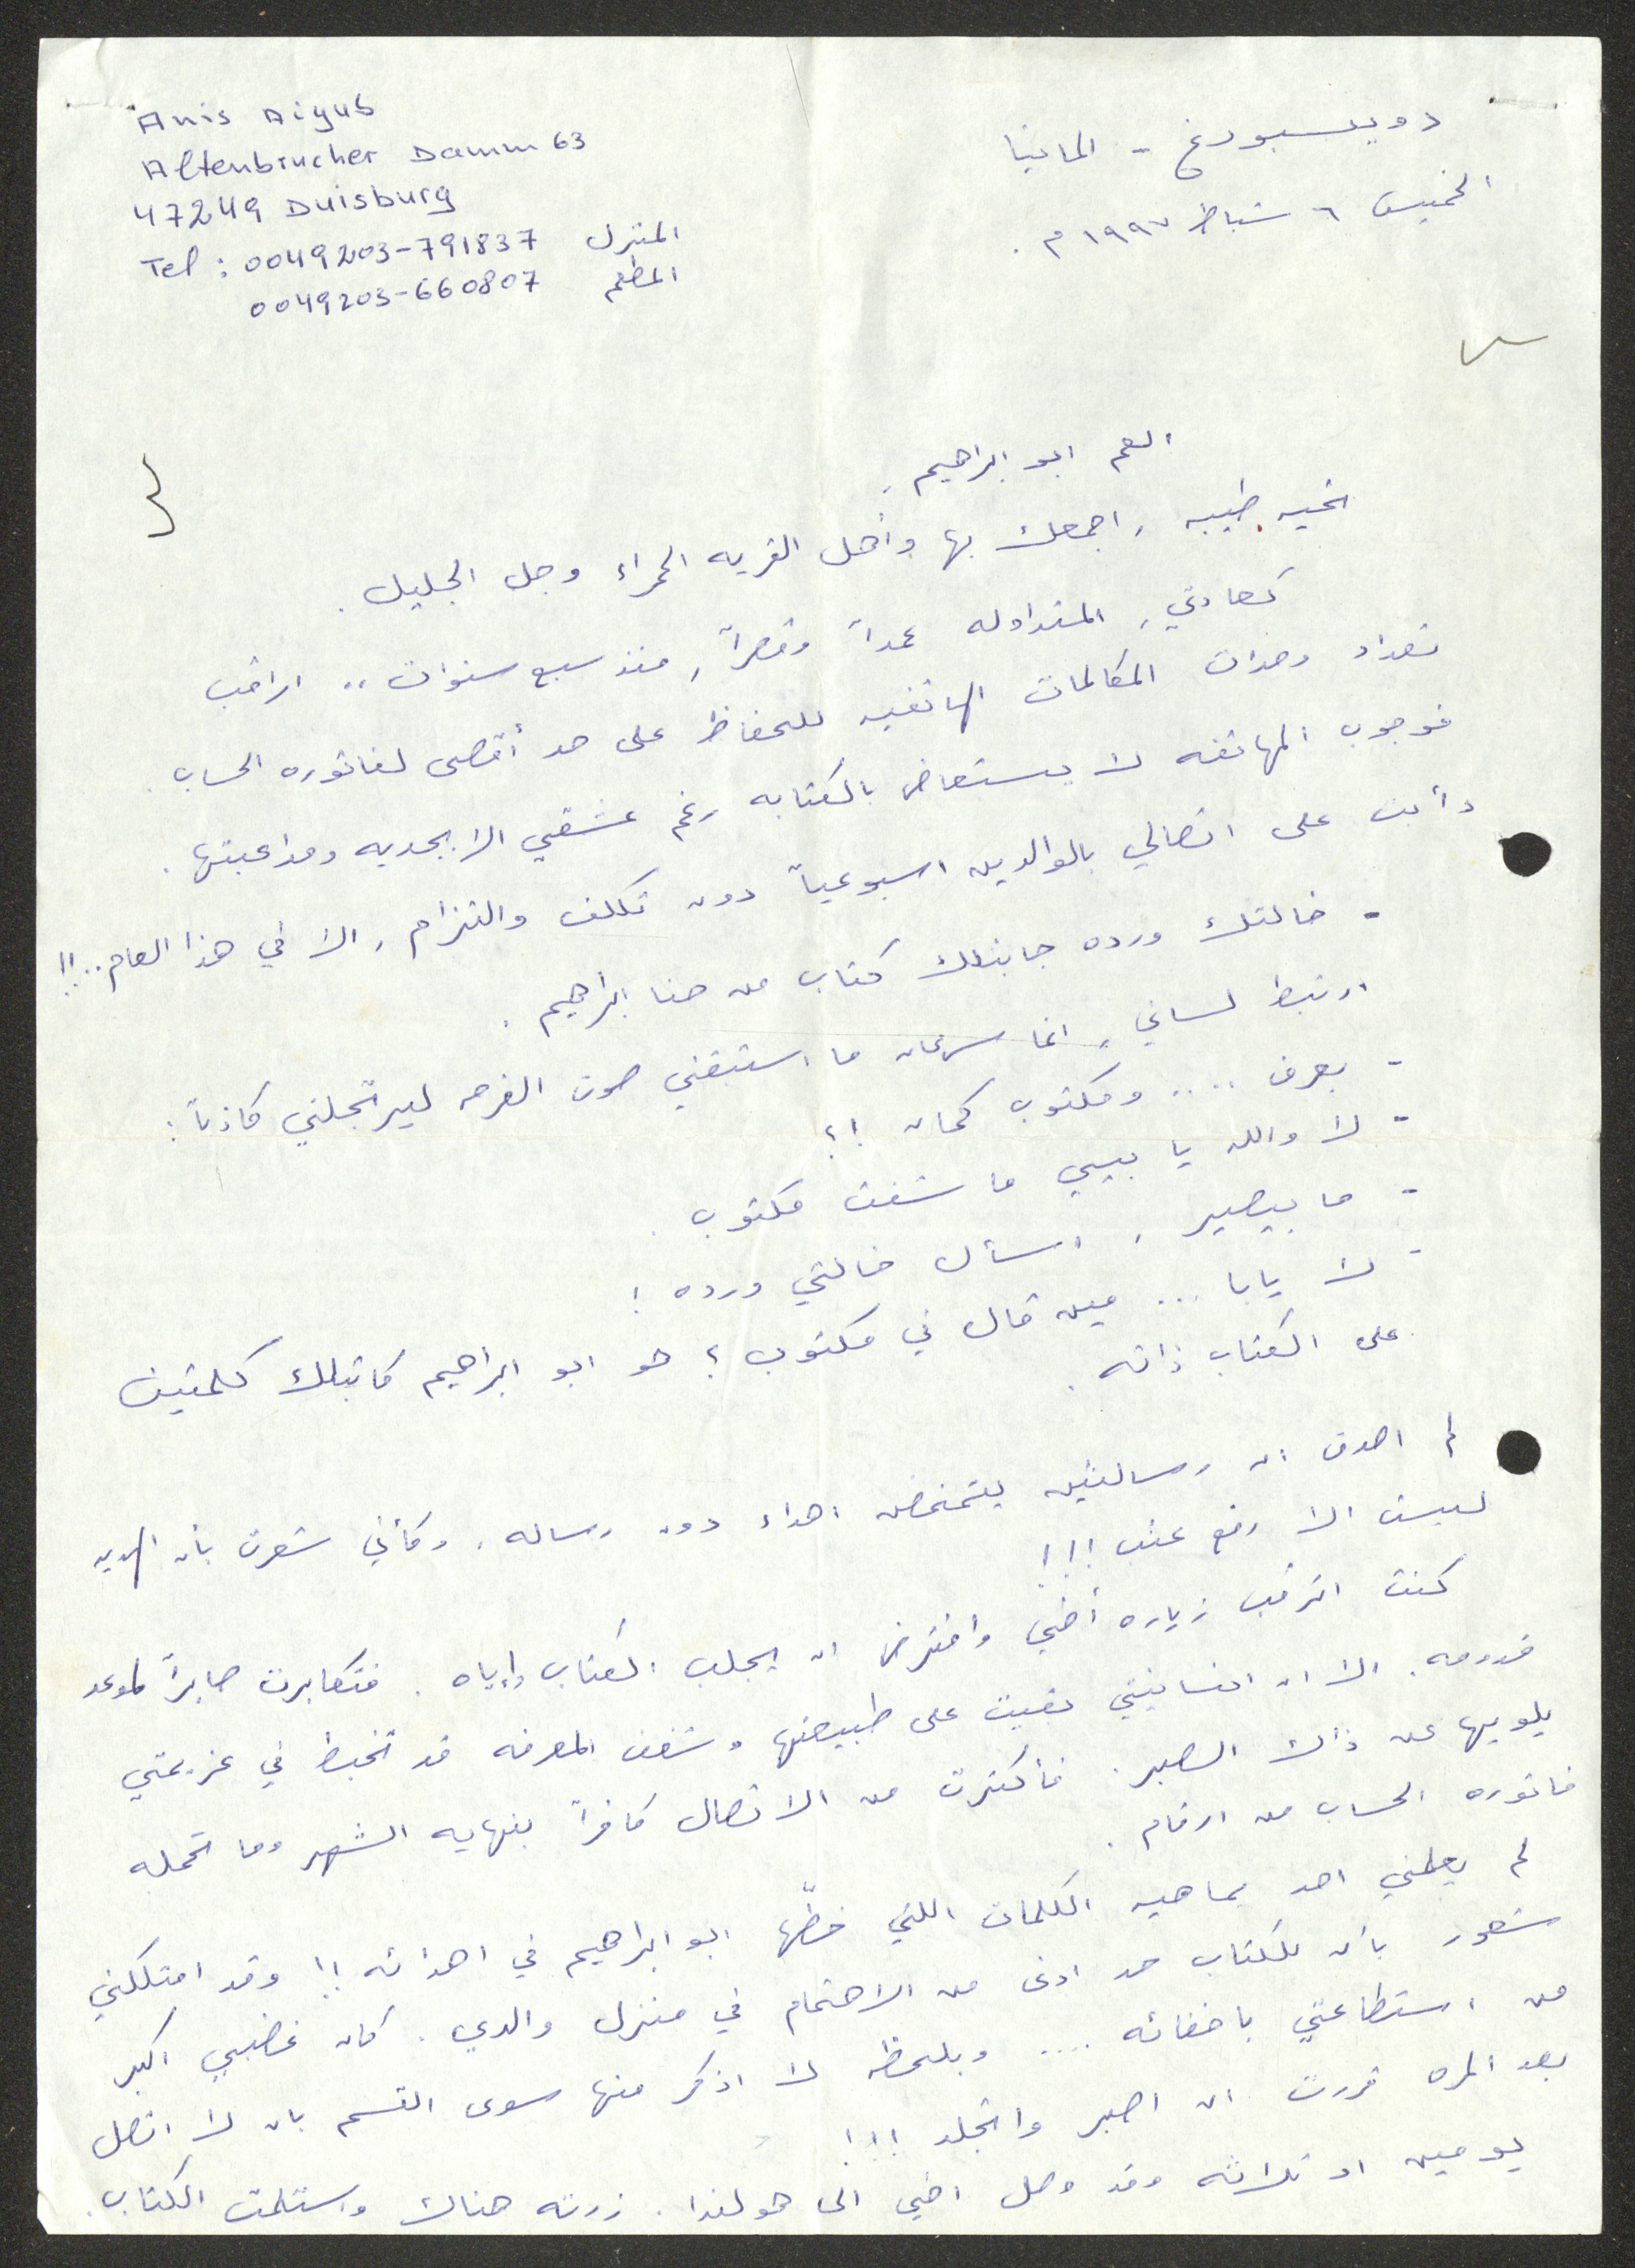 Anis Aiyub
Altenbrucher Damm 63
47249 Duisburg
Tel : 0049203-791837 المنزل
0049203-660807 المطعم
دويسبورغ - المانيا
الخميس ٦ شباط ١٩٩٧ م .
العم ابو ابراهيم ،
تحيه طيبه ، اجمعك بها وأهل القريه الحمراء وجل الجليل .
كعادتي ، المتداوله عمداً وقصراً ، منذ سبع سنوات .. اراقب
تعداد وحدات المكالمات الهاتفيه للحفاظ على حد أقصى لفاتوره الحساب .
فوجوب المهاتفه لا يستعاض بالكتابه رغم عشقي الابجديه ومداعبتها .
دأبت على اتصالي بالوالدين اسبوعياً دون تكلف والتزام ، الا في هذا العام ..!!
- خالتك ورده جابتلك كتاب من حنا ابراهيم .
ارتبط لساني ، انما سرعان ما استبقني صوت الفرحه ليرتجلني كاذباً :
- بعرف .... ومكتوب كمان !؟
- لا والله يا بيي ما شفت مكتوب .
- ما بيصير ، اسأل خالتي ورده !
- لا يابا ... مين قال في مكتوب ؟ هو ابو ابراهيم كاتبلك كلمتين
على الكتاب ذاته .
لم اصدق ان رسالتين يتمخضن اهداء دون رساله ، وكأني شعرت بأن الهديه
ليست الا رفع عتب !!!
كنت اترقب زياره أخي وافترض ان يجلب الكتاب وإياه . فتكابرت صابراً لموعد
قدومه . الا ان انسانيتي بقيت على طبيعتها وشغف المعرفه قد تخبط في عزيمتي
يلويها عن ذاك الصبر . فأكثرت من الاتصال كافراً بنهايه الشهر وما تحمله
فاتوره الحساب من ارقام .
لم يعلمني احد بماهيه الكلمات اللتي خطّها ابو ابراهيم في اهدائه !! وقد امتلكني
شعور بأن للكتاب حد ادنى من الاهتمام في منزل والدي . كان غضبي اكبر
من استطاعتي باخفائه .... وبلحظه لا اذكر منها سوى القسم بان لا اتصل
بعد المره قررت ان اصبر واتجلد !!!
يومين او ثلاثه وقد وصل اخي الى هولندا . زرته هناك واستلمت الكتاب .